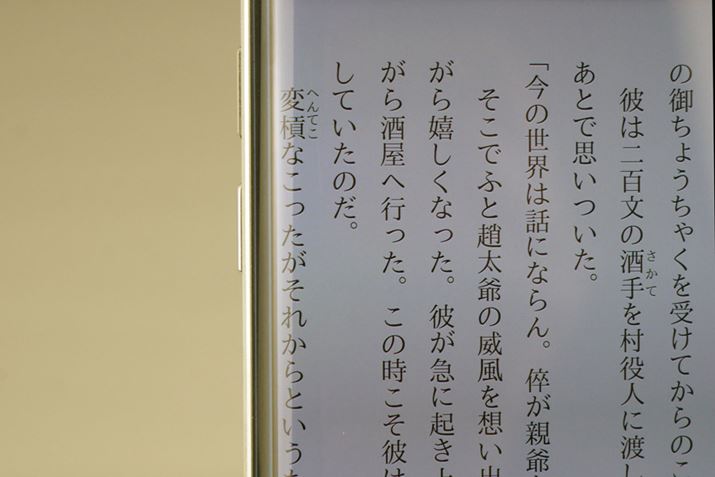 の御ちょうちゃくを受けてからのこ
彼は二百文の酒手を村役人に渡し
さかて
あとで思いついた。
「今の世界は話にならん。倅が親爺
そこでふと趙太爺の威風を想い出
がら嬉しくなった。彼が急に起き上
がら酒屋へ行った。この時こそ彼は
していたのだ。
変槓なこったがそれからというも
へんてこ